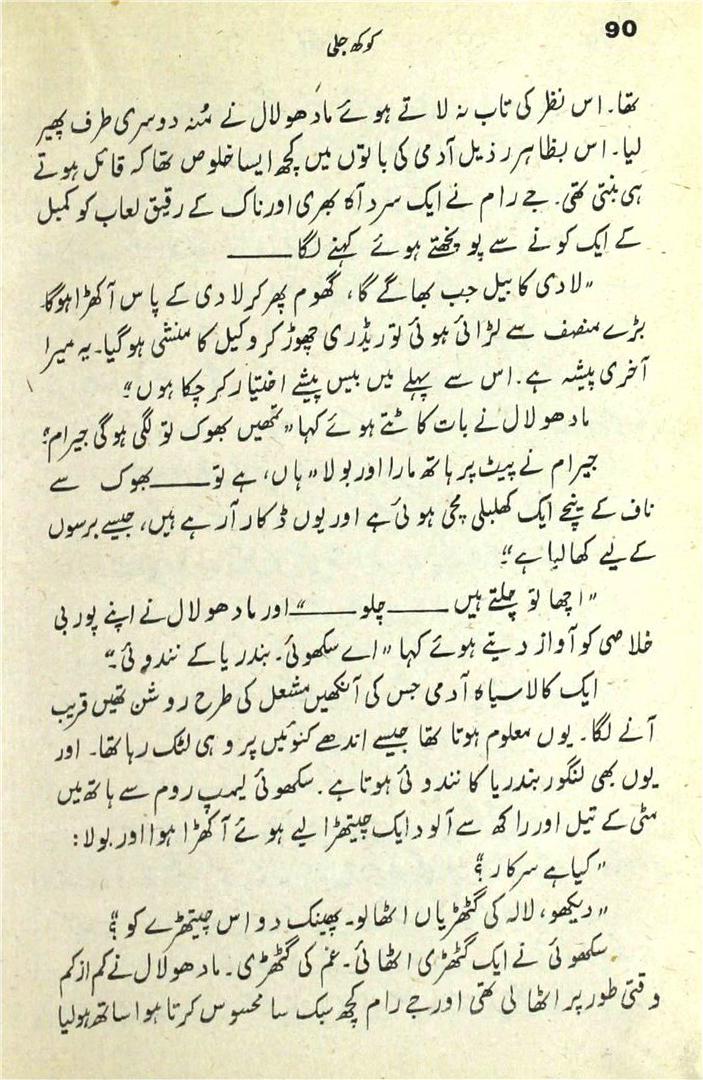 90
کوکھ جلی
تھا۔ اس نظر کی تاب نہ لاتے ہوئے مادھولال نے مُنہ دوسری طرف پھیر
لیا۔ اس بظاہر رذیل آدمی کی باتوں میں کچھ ایسا خلوص تھا کہ قائل ہوتے
ہی بنتی تھی۔ جے رام نے ایک سرد آہ بھری اور ناک کے رقیق لعاب کو کمبل
کے ایک کونے سے پونچھتے ہوئے کہنے لگا ———
”لادی کا بیل جب بھاگے گا، گھوم پھر کر لادی کے پاس آ کھڑا ہوگا۔
بڑے منصف سے لڑائی ہوئی تو ریڈری چھوڑ کر وکیل کا منشی ہوگیا۔ یہ میرا
آخری پیشہ ہے۔ اس سے پہلے میں بیس پیشے اختیار کر چکا ہوں“۔
مادھولال نے بات کاٹتے ہوئے کہا ”تمھیں بھوک تو لگی ہوگی جیرام؟
جیرام نے پیٹ پر ہاتھ مارا اور بولا ”ہاں، ہے تو——— بھوک سے
ناف کے نیچے ایک کھلبلی مچی ہوئی ہے اور یوں ڈکار آ رہے ہیں، جیسے برسوں
کے لیے کھا لیا ہے“۔
”اچھا تو چلتے ہیں ——— چلو ———“ اور مادھولال نے اپنے پوربی
خلاصی کو آواز دیتے ہوئے کہا ”اے سکھوئی۔ بندریا کے نندوئی۔“
ایک کالا سیاہ آدمی جس کی آنکھیں مشعل کی طرح روشن تھیں قریب
آنے لگا۔ یوں معلوم ہوتا تھا جیسے اندھے کنوئیں پر وہی لٹک رہا تھا۔ اور
یوں بھی لنگور بندریا کا نندوئی ہوتا ہے۔ سکھوئی لیمپ روم سے ہاتھ میں
مٹی کے تیل اور راکھ سے آلود ایک چیتھڑا لیے ہوئے آ کھڑا ہوا اور بولا:
”کیا ہے سرکار؟“
”دیکھو، لالہ کی گٹھڑیاں اٹھا لو۔ پھینک دو اس چیتھڑے کو؟“
سکھوئی نے ایک گٹھڑی اٹھائی۔ غم کی گٹھڑی۔ مادھولال نے کم از کم
وقتی طور پر اٹھا لی تھی اور جے رام کچھ سبک سا محسوس کرتا ہوا ساتھ ہولیا